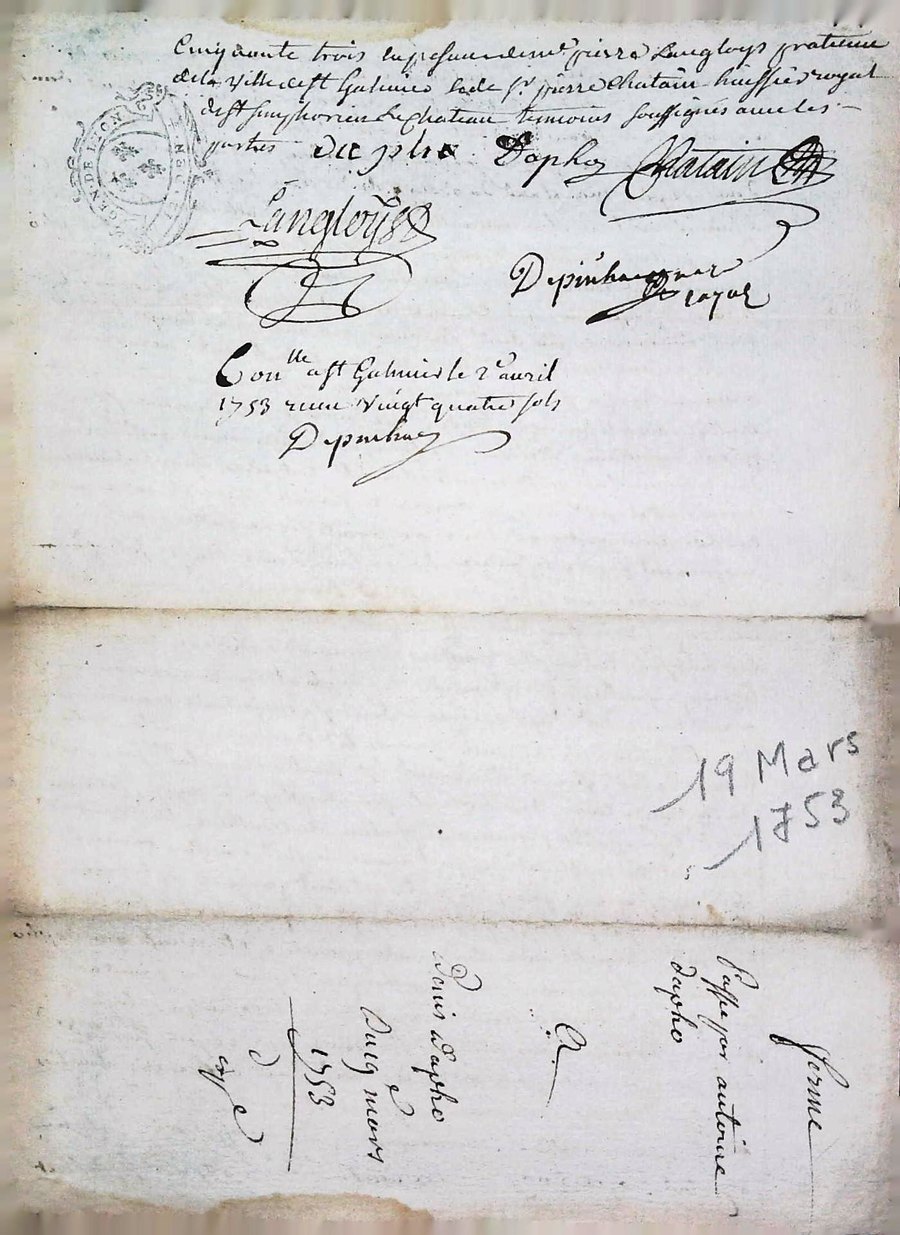 Cinquante trois en presence de mr pierre Langloys praticien
de la Ville de st Galmier & de sr pierre Chatain huissier royal
de st simphorien Le Chateau temoins soussignés avec les
parties
Dapho Chatain
Langloys
Depinhac
royal
Conlle a st Galmier le 2e avril
1753 reçu vingt quatre sols
Depinhac
19 Mars
1753
ferme
passé par antoine
dapho
A
Denis dapho
Du 19e mars
1753
GEN. DE LYON